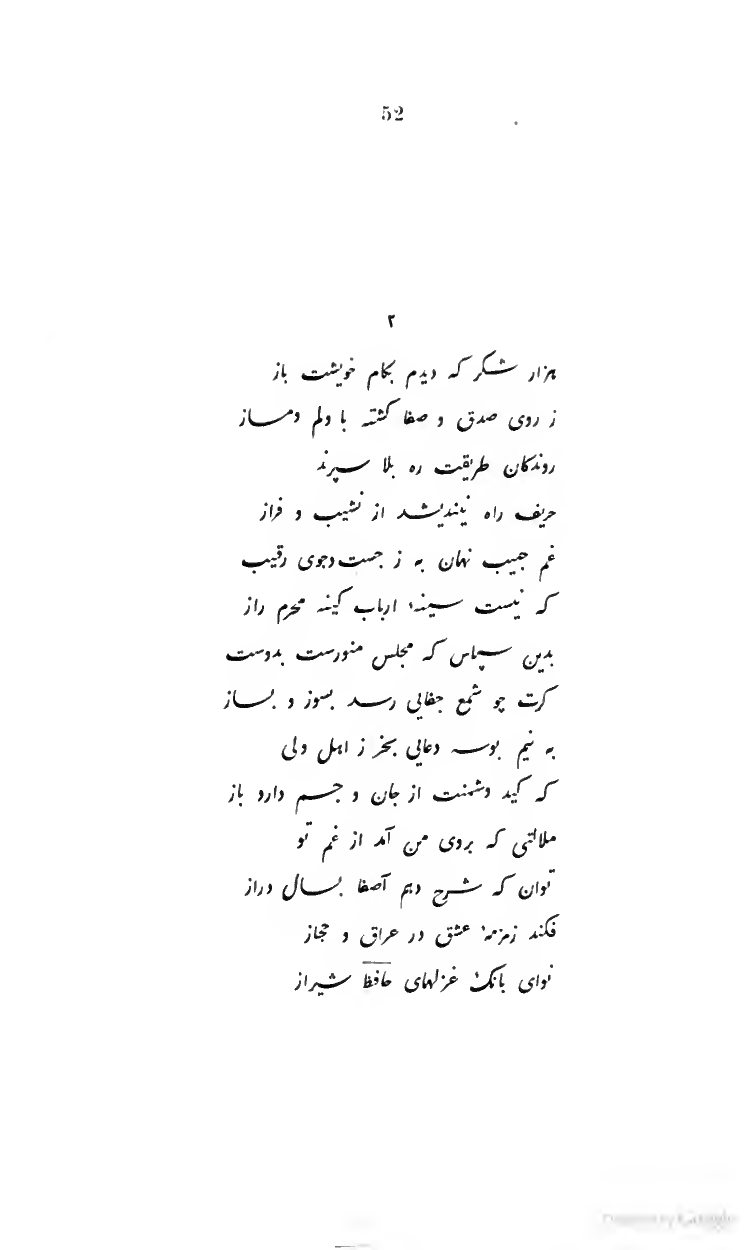 52
۲
هزار شکر که دیدم بکام خویشت باز
ز روی صدق و صفا کشته با دلم دمساز
روندکان طریقت ره بلا سپرند
حریف راه نیندیشد از نشیب و فراز
غم حبیب نهان به ز جست‌وجوی رقیب
که نیست سینهٔ ارباب کینه محرم راز
بدین سپاس که مجلس منورست بدوست
کرت چو شمع جفایی رسد بسوز و بساز
به نیم بوسه دعایی بخر ز اهل دلی
که کید دشمنت از جان و جسم دارد باز
ملالتی که بروی من آمد از غم تو
توان که شرح دهم آصفا بسال دراز
فکند زمزمهٔ عشق در عراق و حجاز
نوای بانک غزلهای حافظ شیراز
Google